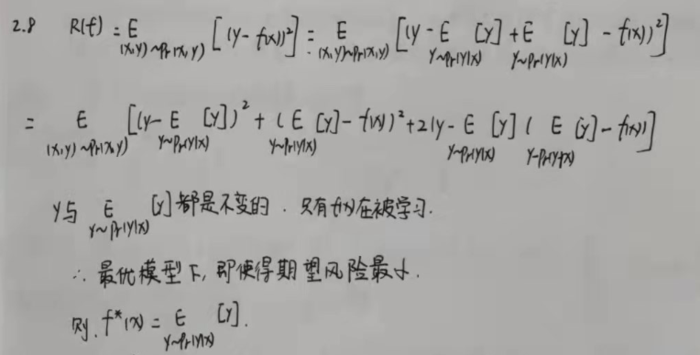 2.8 R(f) = E(x,y)~Pr(x,y) [(y-f(x))²] = E(x,y)~Pr(x,y) [(y-Ey~Pr(y|x)[y]+Ey~Pr(y|x)[y]-f(x))²]
= E(x,y)~Pr(x,y) [(y-Ey~Pr(y|x)[y])²+(Ey~Pr(y|x)[y]-f(x))²+2(y-Ey~Pr(y|x)[y](Ey~Pr(y|x)[y]-f(x))]
y与 Ey~Pr(y|x)[y] 都是不变的.只有f(x)在被学习.
∴ 最优模型下,即使得期望风险最小.
则.f*(x)=Ey~Pr(y|x)[y].